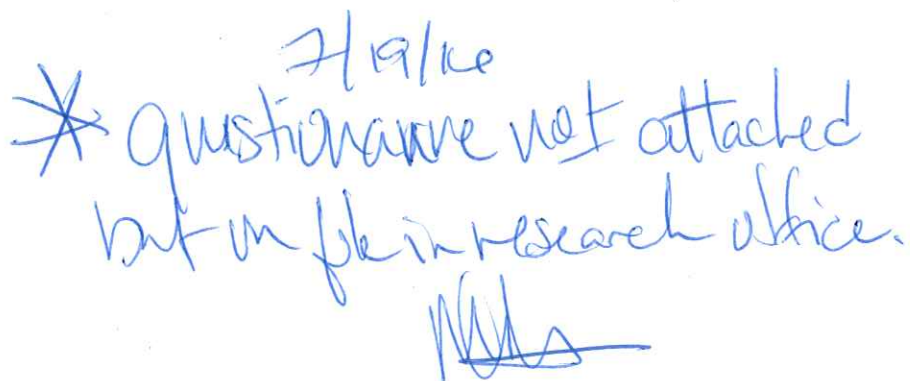 7/19/16
* questionnaire not attached
but on file in research office.